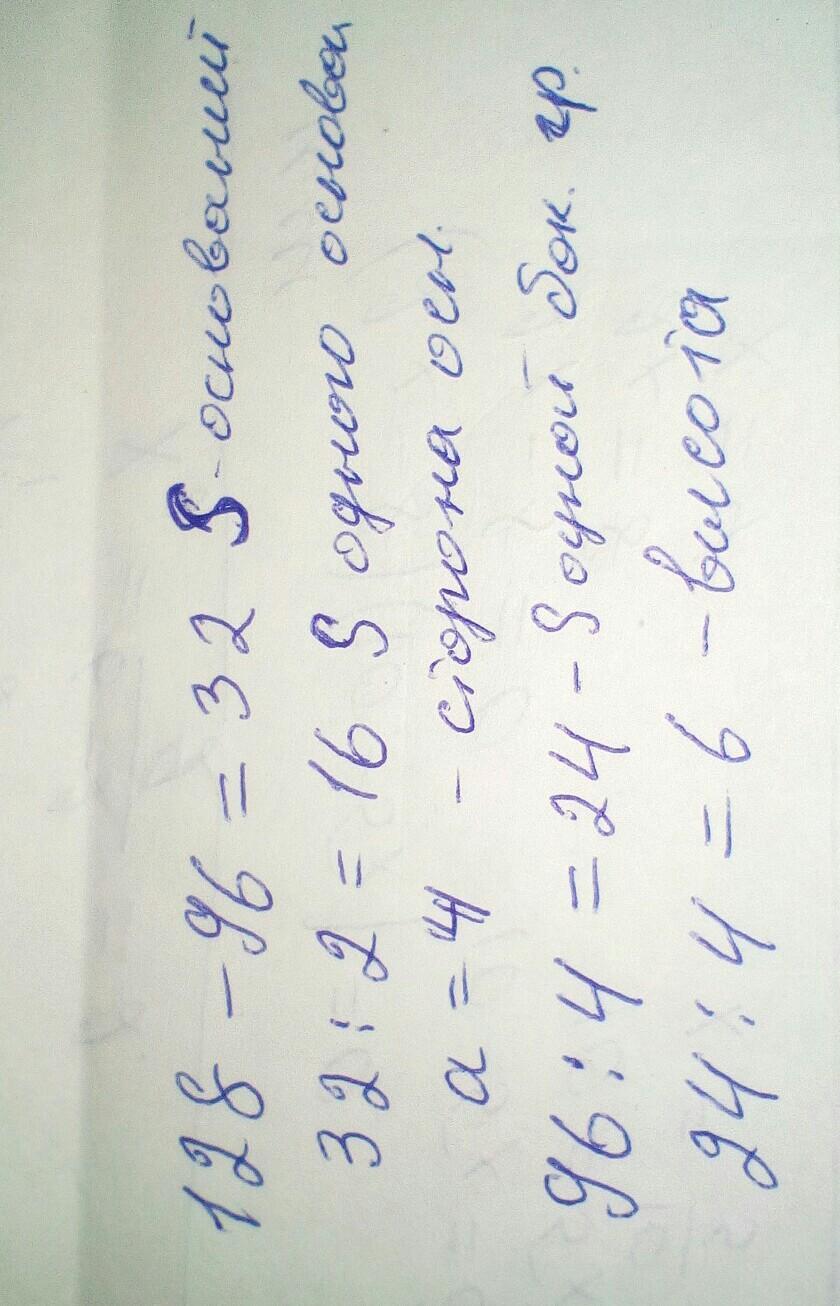 128 - 96 = 32 S - оснований
32 : 2 = 16 S одного основан
a = 4 - сторона осн.
96 : 4 = 24 - S одной бок. гр.
24 : 4 = 6 - высота